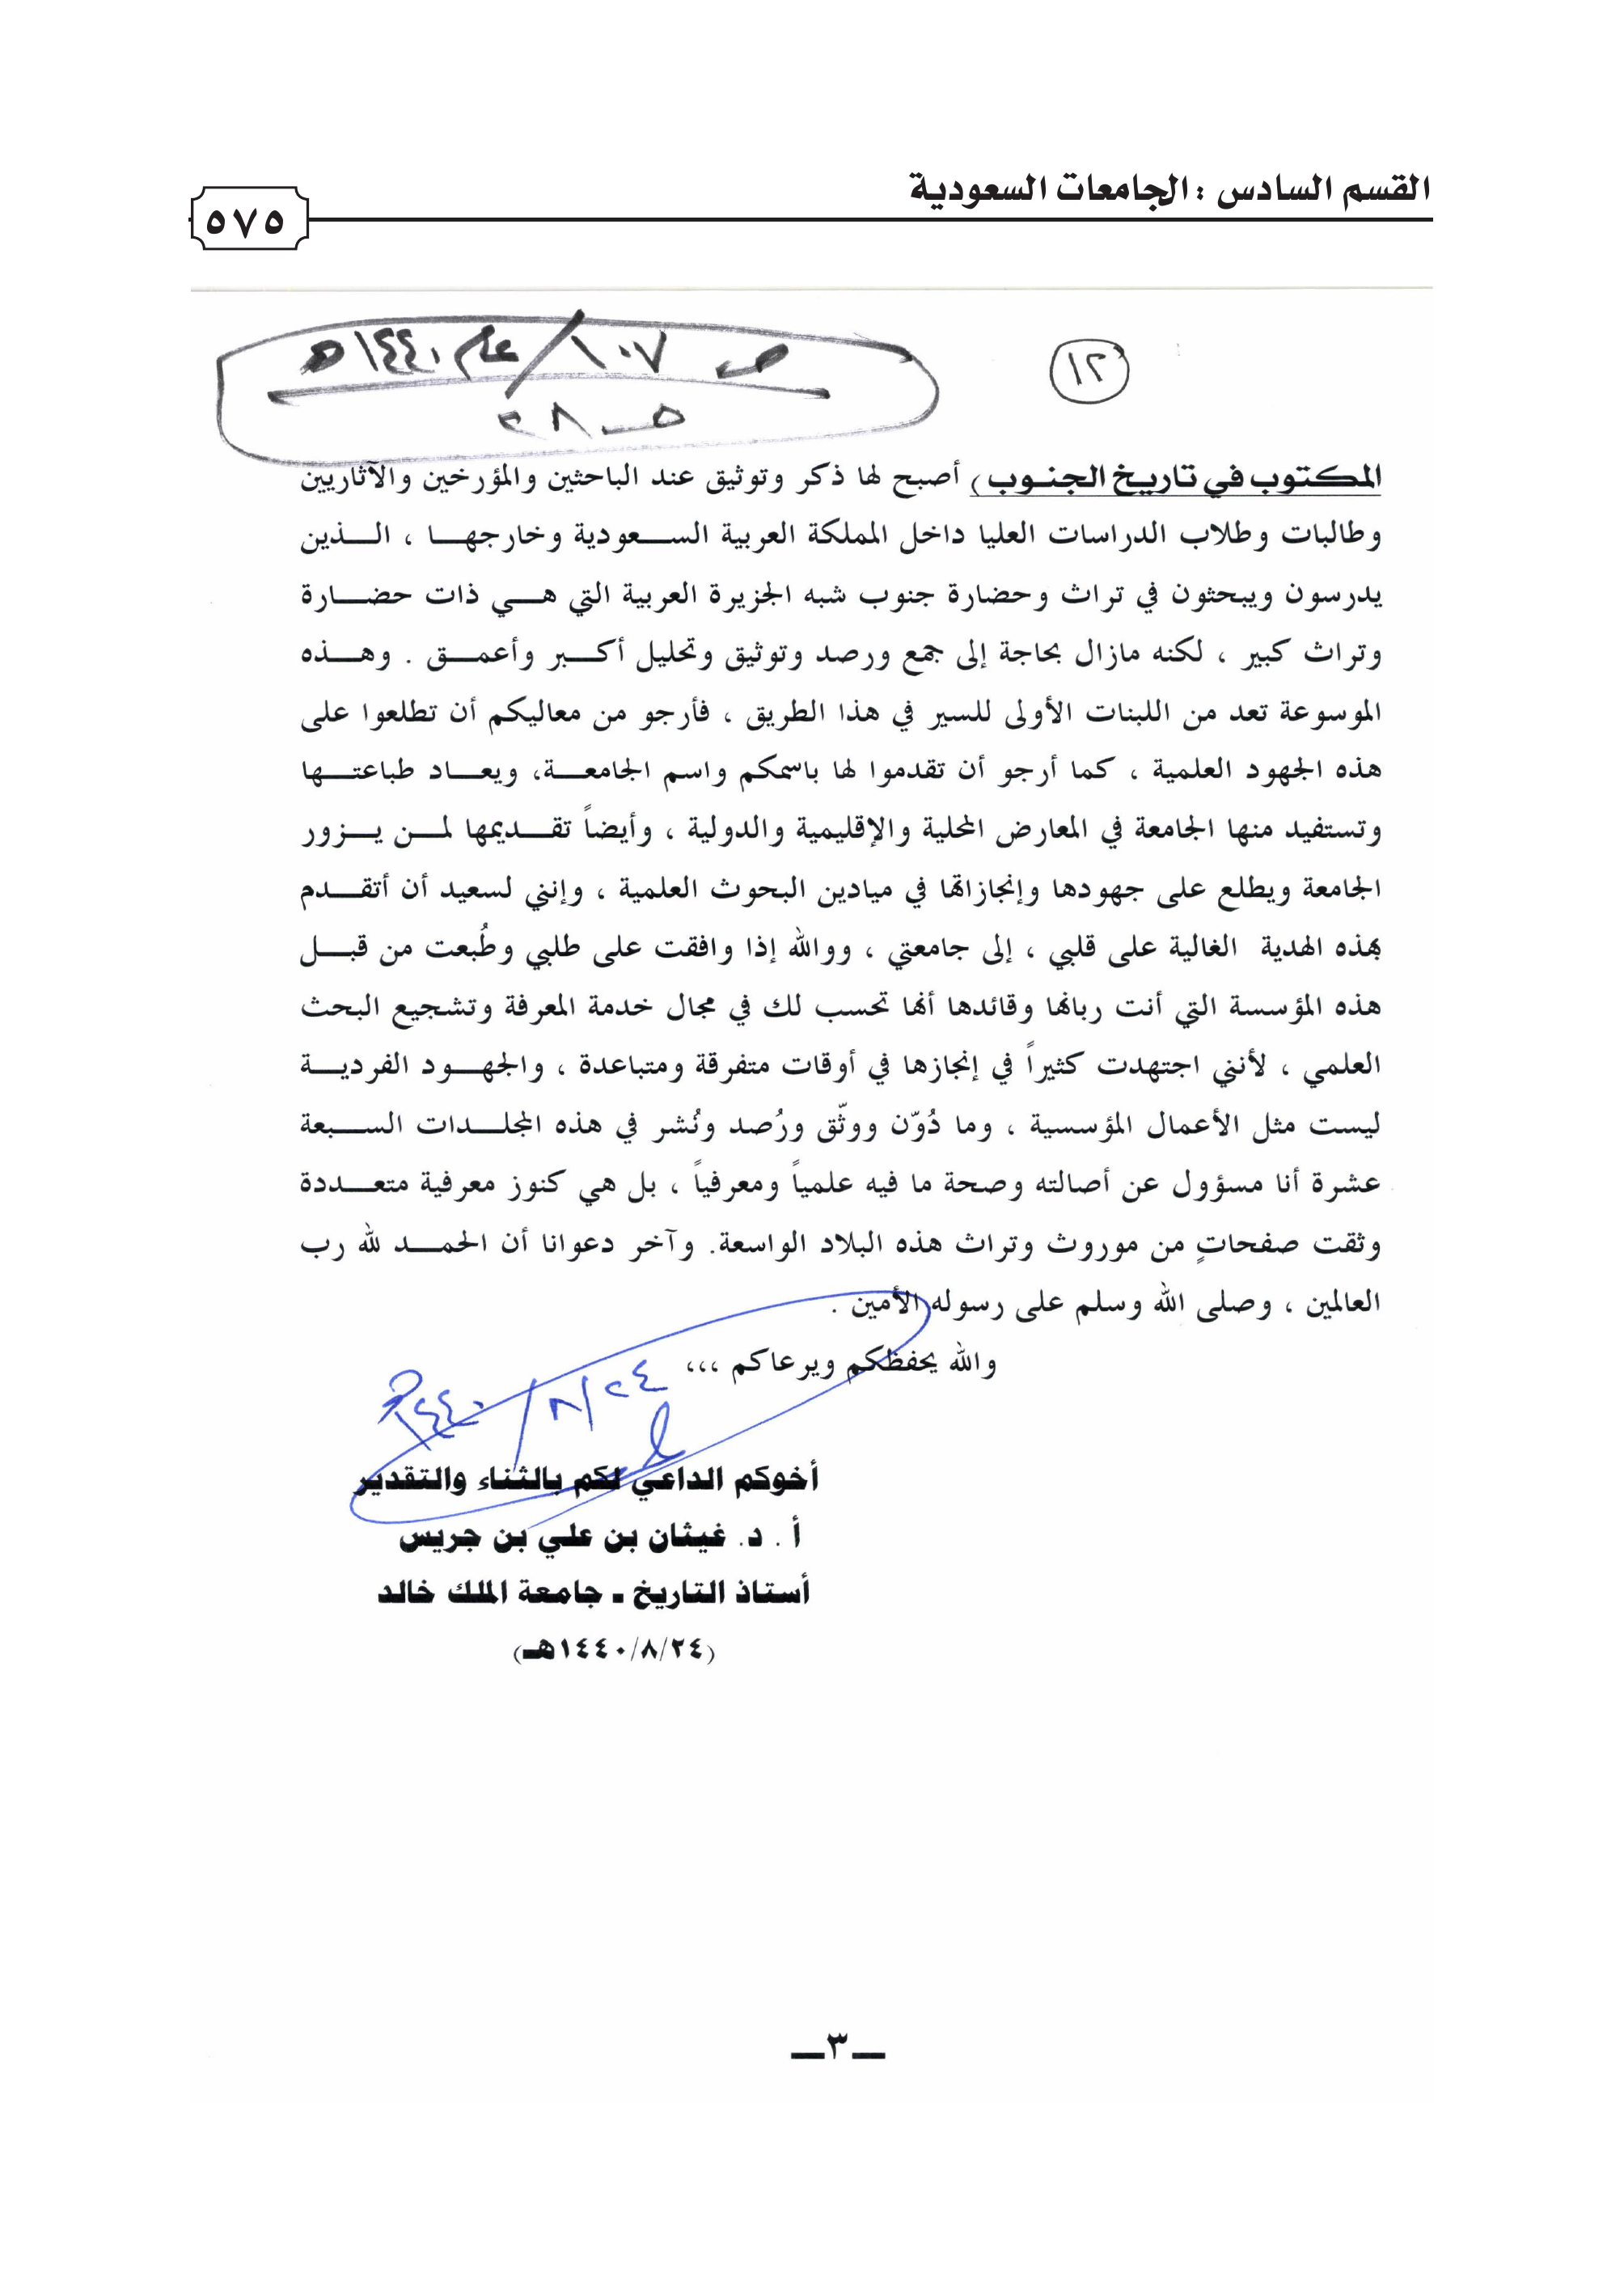 القسم السادس : الجامعات السعودية
٥٧٥
١٢
ص ١٠٧ / عام ١٤٤٠هـ
٢٨
المكتوب في تاريخ الجنوب) أصبح لها ذكر وتوثيق عند الباحثين والمؤرخين والآثاريين
وطالبات وطلاب الدراسات العليا داخل المملكة العربية السعودية وخارجها ، الذين
يدرسون ويبحثون في تراث وحضارة جنوب شبه الجزيرة العربية التي هي ذات حضارة
وتراث كبير ، لكنه مازال بحاجة إلى جمع ورصد وتوثيق وتحليل أكبر وأعمق . وهذه
الموسوعة تعد من اللبنات الأولى للسير في هذا الطريق ، فأرجو من معاليكم أن تطلعوا على
هذه الجهود العلمية ، كما أرجو أن تقدموا لها باسمكم واسم الجامعة، ويعاد طباعتها
وتستفيد منها الجامعة في المعارض المحلية والإقليمية والدولية ، وأيضاً تقديمها لمن يزور
الجامعة ويطلع على جهودها وإنجازاتها في ميادين البحوث العلمية ، وإنني لسعيد أن أتقدم
بهذه الهدية الغالية على قلبي ، إلى جامعتي ، ووالله إذا وافقت على طلبي وطُبعت من قبل
هذه المؤسسة التي أنت ربانها وقائدها أنها تحسب لك في مجال خدمة المعرفة وتشجيع البحث
العلمي ، لأنني اجتهدت كثيراً في إنجازها في أوقات متفرقة ومتباعدة ، والجهود الفردية
ليست مثل الأعمال المؤسسية ، وما دُوّن ووثّق ورُصد ونُشر في هذه المجلدات السبعة
عشرة أنا مسؤول عن أصالته وصحة ما فيه علمياً ومعرفياً ، بل هي كنوز معرفية متعددة
وثقت صفحاتٍ من موروث وتراث هذه البلاد الواسعة. وآخر دعوانا أن الحمد لله رب
العالمين ، وصلى الله وسلم على رسوله الأمين .
والله يحفظكم ويرعاكم ،،،
٢٤/٨/١٤٤٠هـ
أخوكم الداعي لكم بالثناء والتقدير
أ . د. غيثان بن علي بن جريس
أستاذ التاريخ ـ جامعة الملك خالد
(١٤٤٠/٨/٢٤هـ)
ــ ٣ ــ